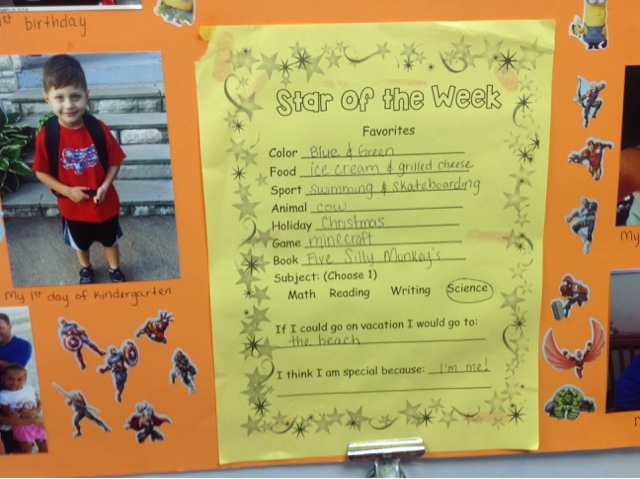 1st birthday
Star of the Week
Favorites
Color Blue & Green
Food ice cream & grilled cheese
Sport swimming & skateboarding
Animal cow
Holiday Christmas
Game minecraft
Book Five Silly Monkey's
Subject: (Choose 1)
Math Reading Writing Science
If I could go on vacation I would go to:
the beach
I think I am special because: I'm me!
My 1st day of kindergarten
My